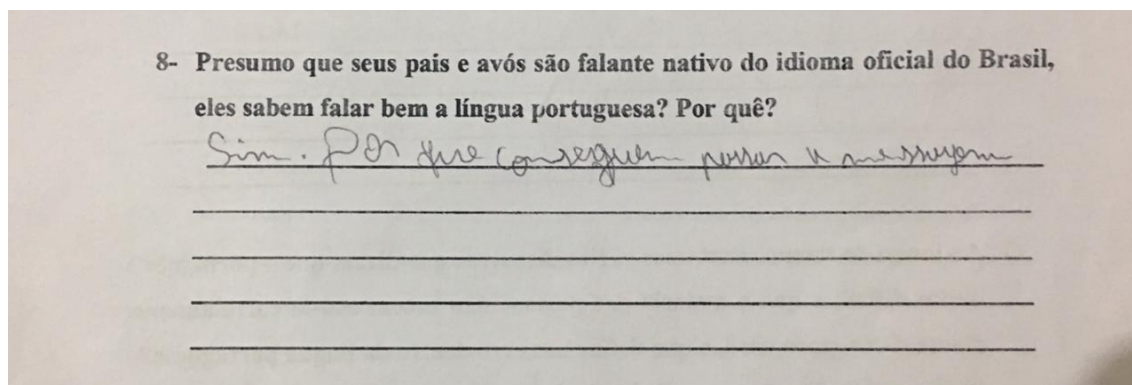 8- Presumo que seus pais e avós são falante nativo do idioma oficial do Brasil,
eles sabem falar bem a língua portuguesa? Por quê?
Sim. Por que conseguem passar a messagem